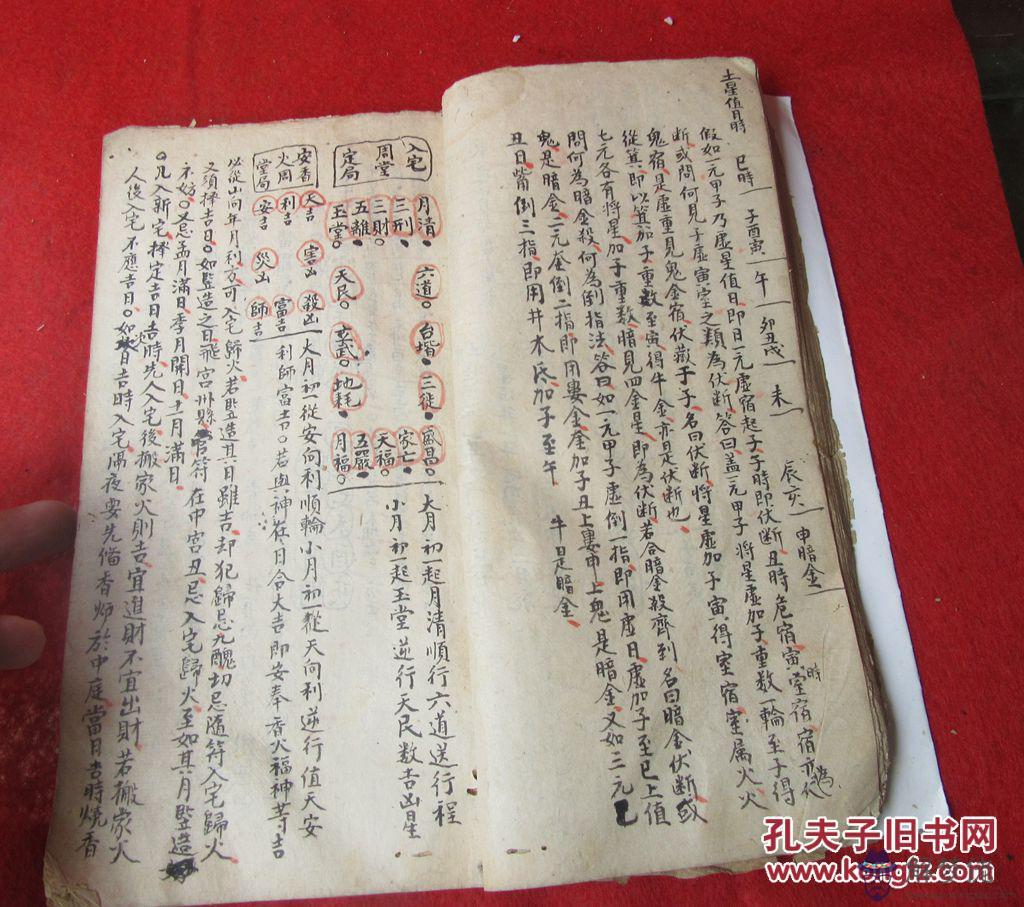 土星值日時 巳時 子酉寅 午 卯丑戌 未 辰亥 申暗金
假如一元甲子乃虛星值日即日一元虛宿起子子時即伏断丑時危宿寅時室宿宿亦為伏
断或問何見子虛寅室之類為伏断答曰盖一元甲子將星虛加子重数一輪至子得
鬼宿是虛重見鬼金宿伏藏于子名曰伏断將星虛加子寅得室宿室属火火
從箕即以箕加子重数至寅得牛金亦是伏断也
七元各有將星加子重数暗見四金星即為伏断若合暗金殺齊到名曰暗金伏断或
問何為暗金殺何為倒指法答曰如一元甲子虛倒一指即用虛日虛加子至巳上值
鬼是暗金二元奎倒二指即用婁金奎加子丑上婁申上鬼是暗金又如三元巳
丑日觜倒三指即用井木氐加子至午 牛日是暗金
入宅
周堂
定局
月清 六道 台堦 三徒 盛昌
三刑 家亡
三財 天福
五離 玄武 地耗 五嚴
玉堂 天民 月福
大月初一起月清順行六道送行程
小月初一起玉堂逆行天民数吉凶星
安香
火周
堂局
天吉 害凶 殺凶 大月初一從安向利順輪小月初一從天向利逆行值天安
利吉 富吉 利師富吉。若與神在日合大吉即安奉香火福神等吉
安吉 災凶 師吉
必從山向年月利方可入宅歸火若竪造其日雖吉却犯歸忌九醜切忌隨符入宅歸火
又須擇吉日。如竪造之日飛宮州縣官符在中宮丑忌入宅歸火至如其月竪造
不妨。又忌孟月滿日季月開日十一月滿日
。凡入新宅擇定吉日吉時先人入宅後搬家火則吉宜進財不宜出財若搬家火
人後入宅不應吉日。如次日吉時入宅隔夜要先借香师於中庭當日吉時燒香
孔夫子旧书网
www.kongfz.com